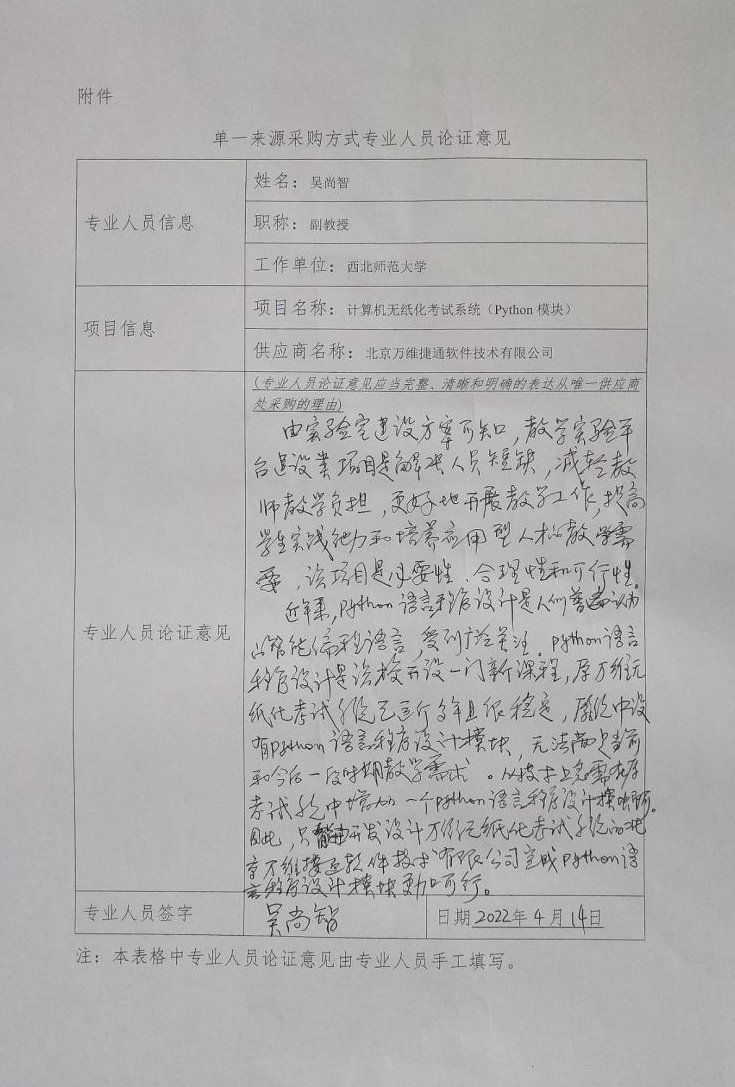 附件
单一来源采购方式专业人员论证意见
专业人员信息
姓名：吴尚智
职称：副教授
工作单位：西北师范大学
项目信息
项目名称：计算机无纸化考试系统（Python 模块）
供应商名称：北京万维捷通软件技术有限公司
专业人员论证意见
(专业人员论证意见应当完整、清晰和明确的表达从唯一供应商
处采购的理由)
由实验室建设方案可知，教学实验平
台建设类项目是解决人员短缺，减轻教
师教学负担，更好地开展教学工作，提高
学生实践能力和培养应用型人才的教学需
要，该项目是必要性、合理性和可行性。
近年来，python语言程序设计是人们普遍认为
的智能编程语言，受到广泛关注。python语言
程序设计是该校开设一门新课程，原万维无
纸化考试系统已运行多年且很稳定，原系统中没
有python语言程序设计模块，无法满足当前
和今后一段时期教学需求。从技术上只需在原
考试系统中增加一个python语言程序设计模块即可。
因此，只能由开发设计万维无纸化考试系统的北
京万维捷通软件技术有限公司完成python语
言程序设计模块更加可行。
专业人员签字
吴尚智
日期 2022年4月14日
注：本表格中专业人员论证意见由专业人员手工填写。